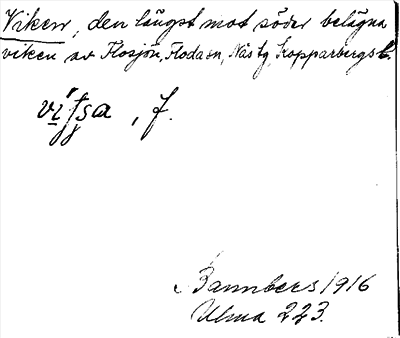 Viken, den längst mot söder belägna
viken av Flosjön, Floda sn, Nås tg, Kopparbergs l.
, f.
Bannbers 1916
Ulma 223.